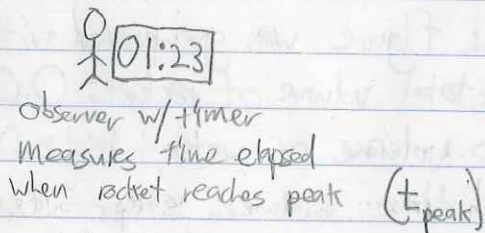 01:23
observer w/ timer
measures time elapsed
when rocket reaches peak (t peak)